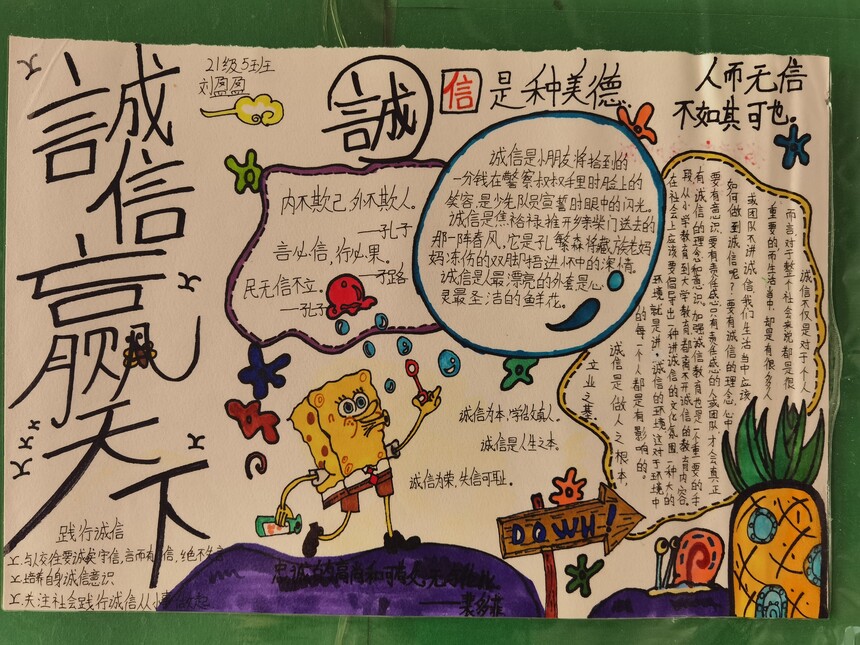 誠信赢天下
21级5班
刘盈盈
誠信是种美德
人而无信
不如其可也。
内不欺己,外不欺人。
——孔子
言必信,行必果。
——子路
民无信不立。
——孔子
诚信是小朋友将拾到的
一分钱在警察叔叔手里时脸上的
笑容,是少先队员宣誓时眼中的闪光。
诚信是焦裕禄推开乡亲柴门送去的
那一阵春风,它是孔繁森将藏族老妈
妈冻伤的双脚捂进怀中的深情。
诚信是人最漂亮的外套是心
灵最圣洁的鱼鲜花。
诚信不仅是对于个人
而言对于整个社会来说都是很
重要的而生活当中,却是有很多人
或团队不讲诚信我们生活当中应该
如何做到诚信呢?要有诚信的理念心中
要有意识,要有责任感只有责任感的人或团队才会真正
有诚信的理念和意识。加强诚信教育也是一个重要的手
段,从小学教育到大学教育都离不开诚信的教育内容。
在社会上应该要倡导出一种讲诚信的文化氛围一种大的
环境就是讲诚信的环境这对于环境中
的每一个人都是有影响的。
诚信是做人之根本,
立业之基。
诚信为本,学做真人。
诚信是人生之本。
诚信为荣,失信可耻。
DOWN!
践行诚信
与人交往要诚实守信,言而有信,绝不失言
培养自身诚信意识
关注社会践行诚信从小事做起
——裴多菲